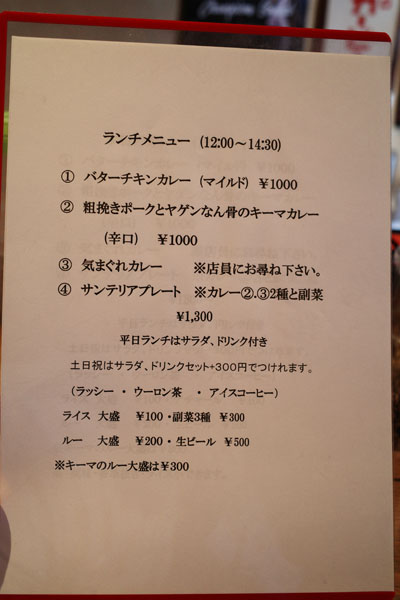 ランチメニュー (12:00～14:30)
① バターチキンカレー (マイルド) ￥1000
② 粗挽きポークとヤゲンなん骨のキーマカレー
(辛口) ￥1000
③ 気まぐれカレー ※店員にお尋ね下さい。
④ サンテリアプレート ※カレー②.③2種と副菜
￥1,300
平日ランチはサラダ、ドリンク付き
土日祝はサラダ、ドリンクセット+300円でつけれます。
(ラッシー ・ ウーロン茶 ・ アイスコーヒー)
ライス 大盛 ￥100 ・副菜3種 ￥300
ルー 大盛 ￥200 ・生ビール ￥500
※キーマのルー大盛は￥300